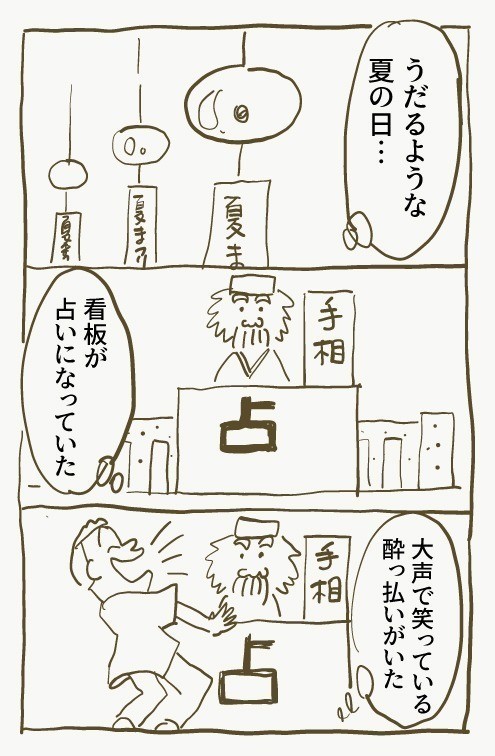 うだるような
夏の日…
夏ま
夏まつ
看板が
占いになっていた
手相
占
大声で笑っている
酔っ払いがいた
手相
占